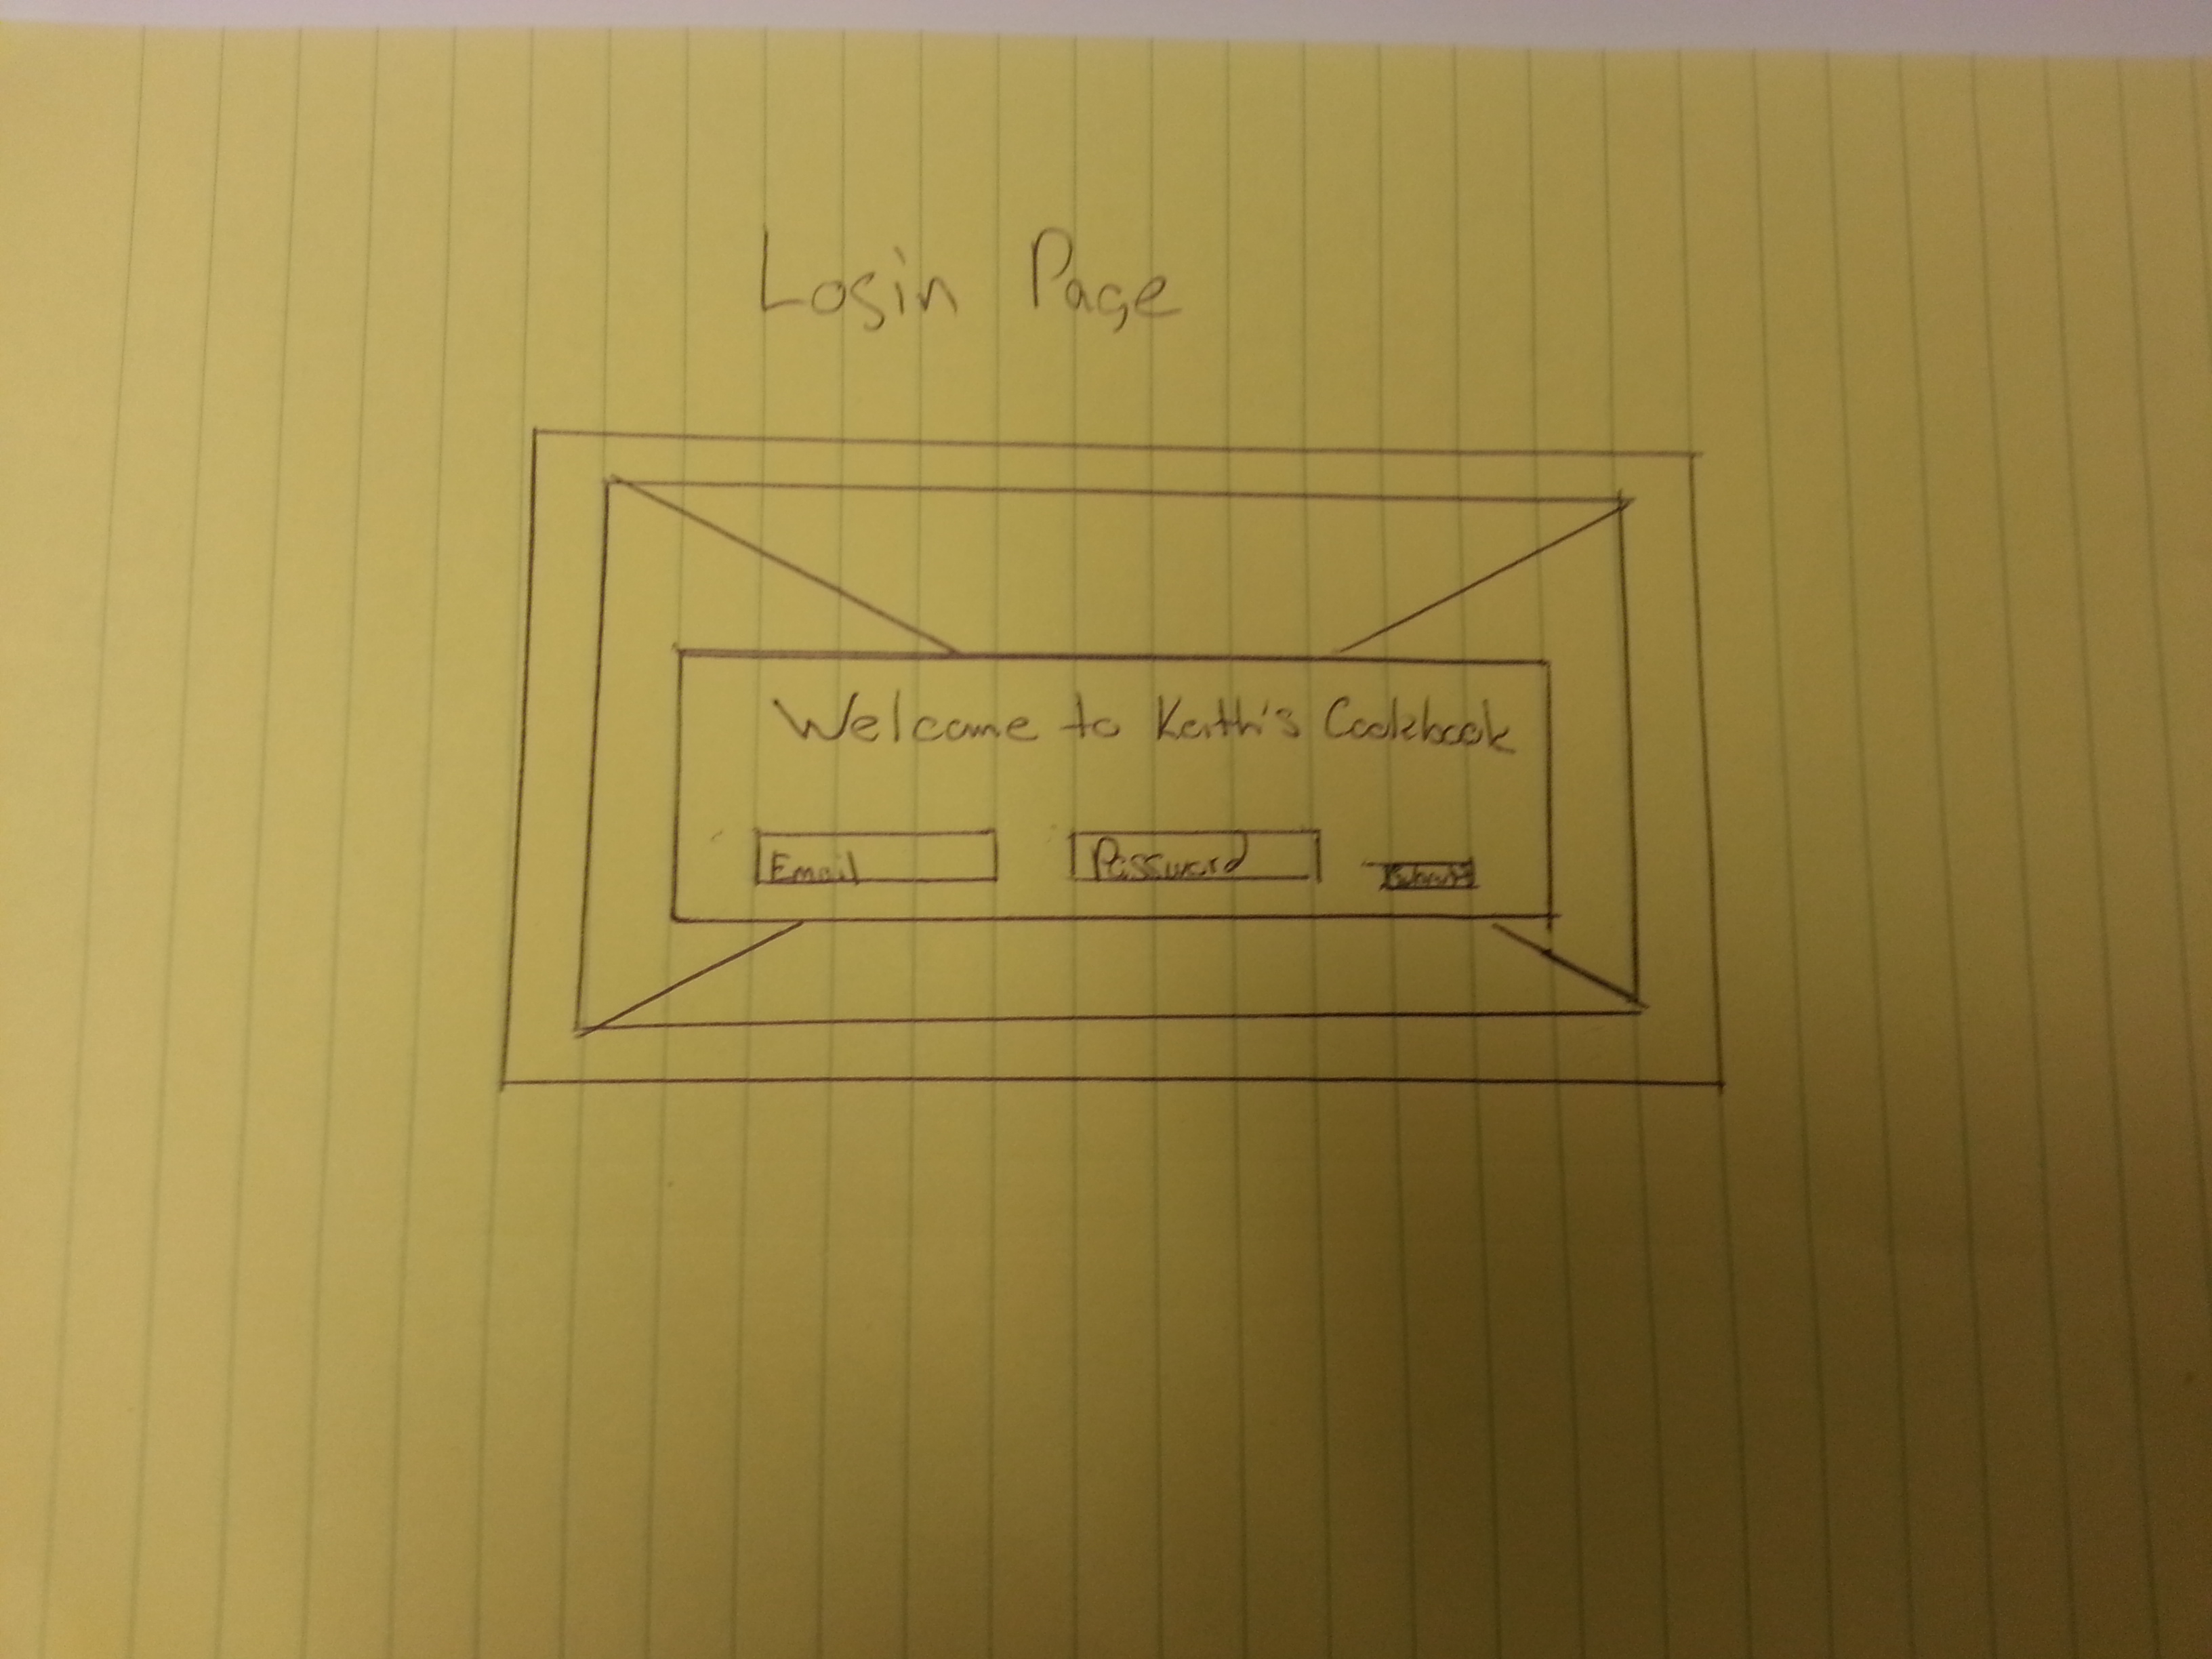 Login Page
Welcome to Keith's Cookbook
Email Password Submit